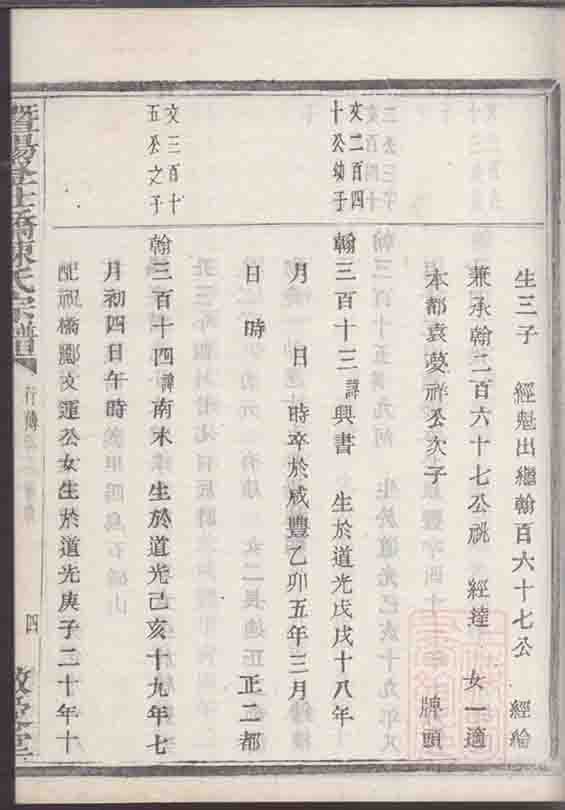 生三子 經魁出繼翰百六十七公 經綸
兼承翰二百六十七公祧 經達 女一適
本都袁夢祥公次子 牌頭
文二百四
十公幼子
翰三百十三諱興書 生於道光戊戌十八年
月 日 時卒於咸豐乙卯五年三月
日 時 正二都
文三百十
五公之子
翰三百十四諱南木 生於道光己亥十九年七
月初四日午時
配祝橋酈文運公女生於道光庚子二十年十
陳氏宗譜
行傳
四